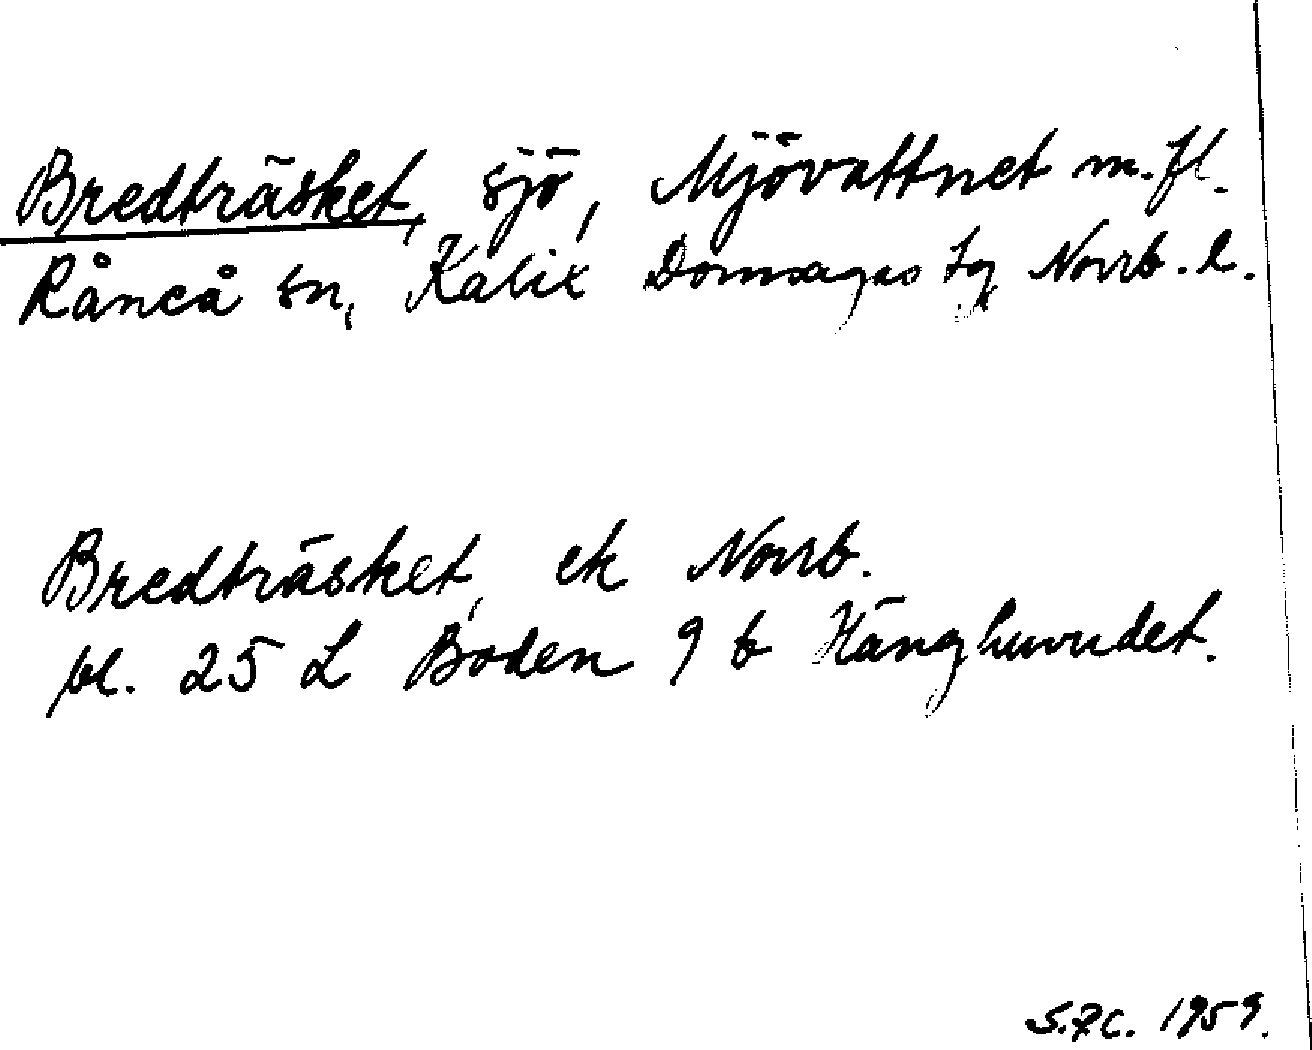 Bredträsket, sjö, Mjövattnet m.fl.
Råneå sn, Kalix Domsagas tg Norrb. l.
Bredträsket, ek Norrb.
bl. 25 L Boden 9 b Hänghuvudet.
1959.